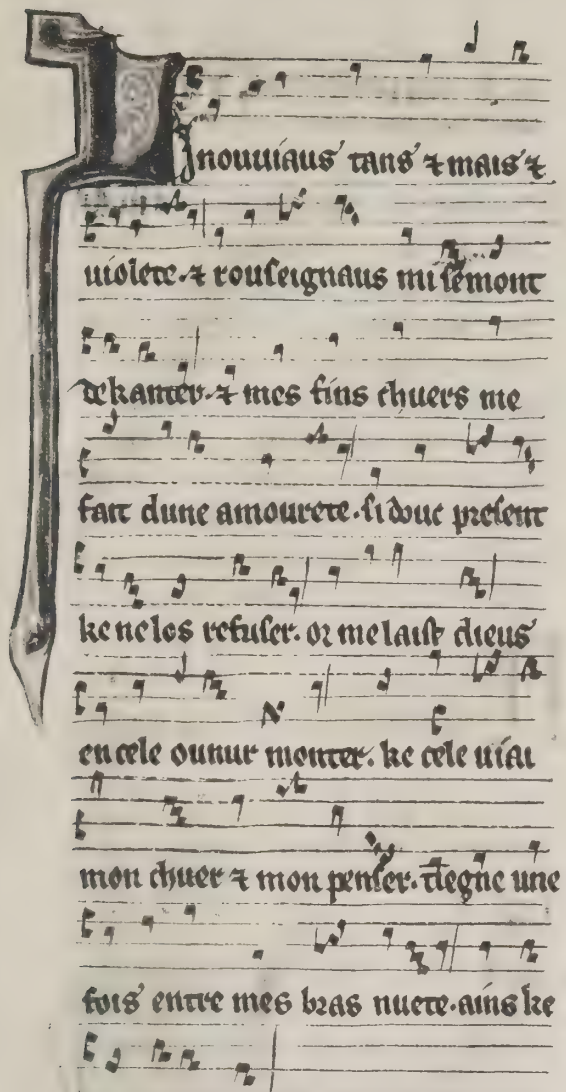 Li nouuiaus tans ⁊ mais ⁊
uiolete. ⁊ rouseignaus mi semont
de kanter. ⁊ mes fins chuers me
fait dune amourete. si douc present
ke ne los refuser. or me laist dieus
en cele ounur monter. ke cele u iai
mon chuer ⁊ mon penser. tiegne une
fois entre mes bras nuete. ains ke